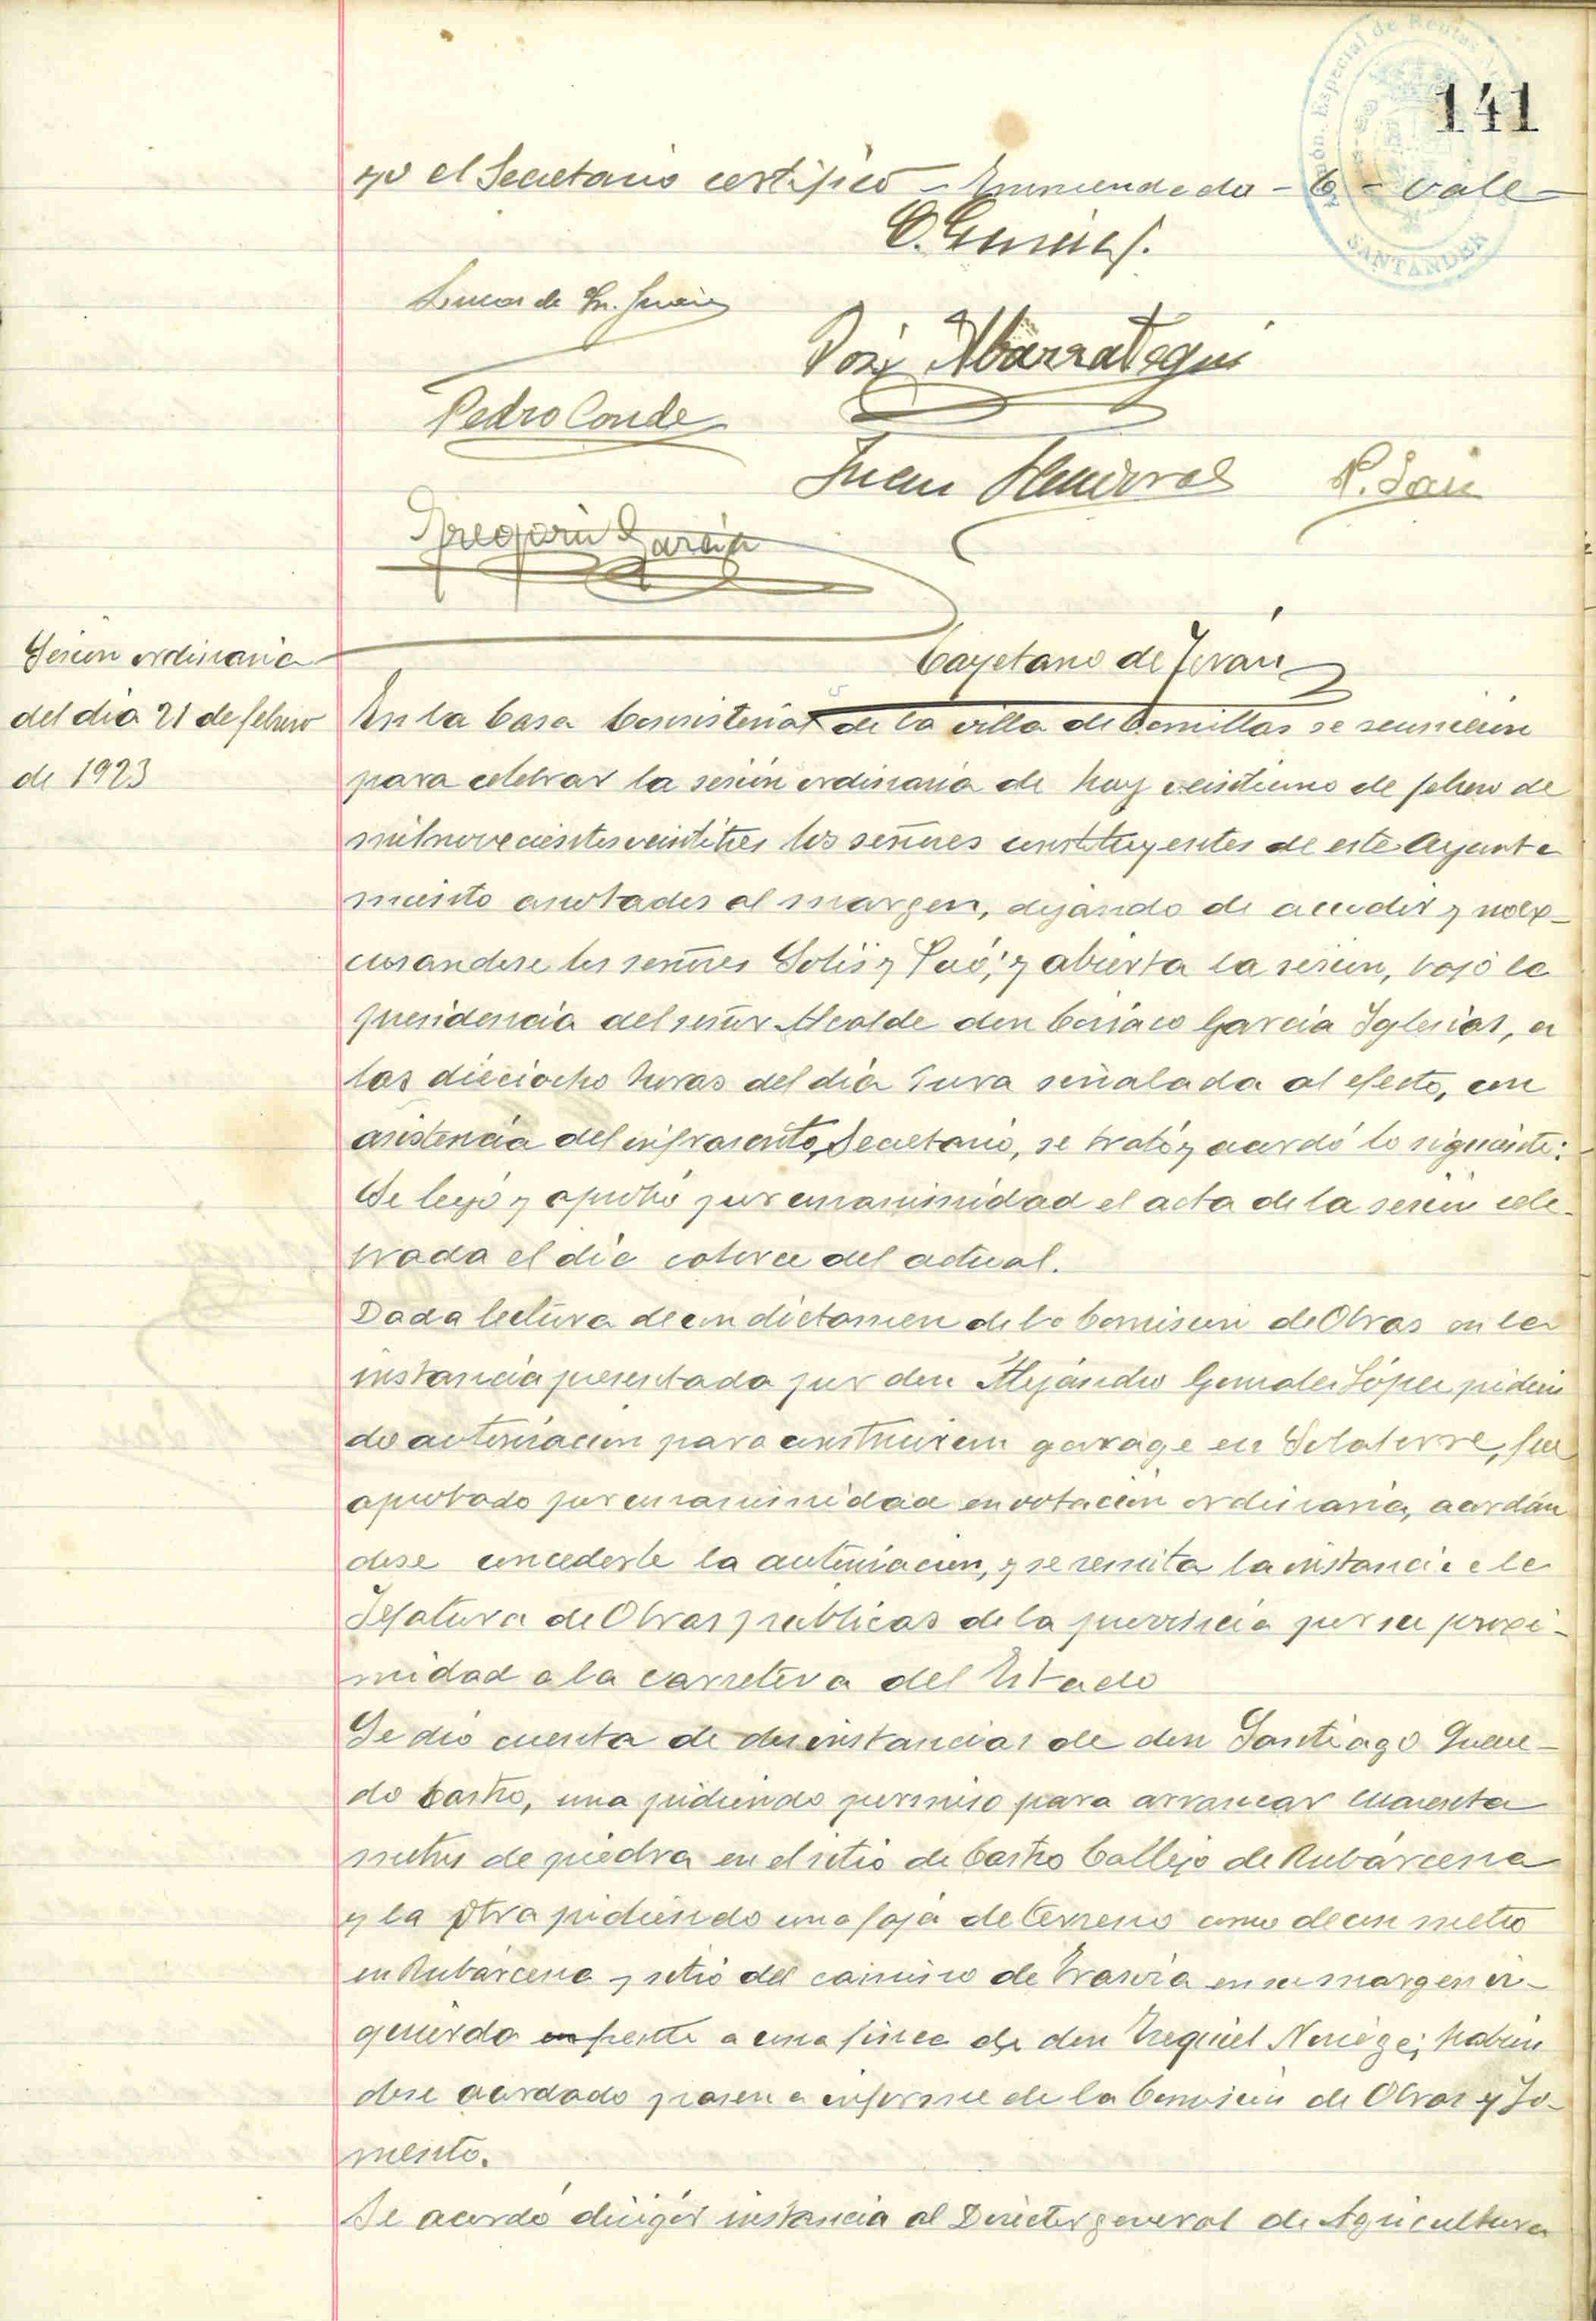 141
yo el Secretario certifico - Enmendado - C - vale -
C. García
Pedro Conde
José Abarrategui
Juan
Gregorio García
Cayetano de Terán
Sesion ordinaria
del dia 21 de febrero
de 1923
En la Casa Consistorial de la villa de Comillas se reunieron
para celebrar la sesion ordinaria de hoy veintiuno de febrero de
mil novecientos veintitres los señores constituyentes de este Ayunta
miento anotados al margen, dejando de acudir y no ex-
cusandose los señores Solis y Puó; y abierta la sesion, bajo la
presidencia del señor Alcalde don Ciriaco García Iglesias, a
las dieciocho horas del dia hora señalada al efecto, con
asistencia del infrascrito Secretario, se trató y acordó lo siguiente:
Se leyó y aprobó por unanimidad el acta de la sesion cele-
brada el dia catorce del actual.
Dada lectura de un dictamen de la Comision de Obras en la
instancia presentada por don Alejandro Gonzalez López pidien
do autorizacion para construir un garage en Solatorre, fue
aprobado por unanimidad en votacion ordinaria, acordán
dose concederle la autorizacion, y se remita la instancia a la
Jefatura de Obras publicas de la provincia por su proxi-
midad a la carretera del Estado
Se dio cuenta de dos instancias de don Santiago Queve-
do Castro, una pidiendo permiso para arrancar cuarenta
metros de piedra en el sitio de Castro Callejo de Rubárcena
y la otra pidiendo una faja de terreno como de un metro
en Rubárcena y sitio del camino de Trasvia en su margen iz-
quierda en frente a una finca de don Ezequiel Noriega; habien
dose acordado pasen a informe de la Comision de Obras y Fo-
mento.
Se acordó dirigir instancia al Director general de Agricultura
Especial de Rentas
SANTANDER